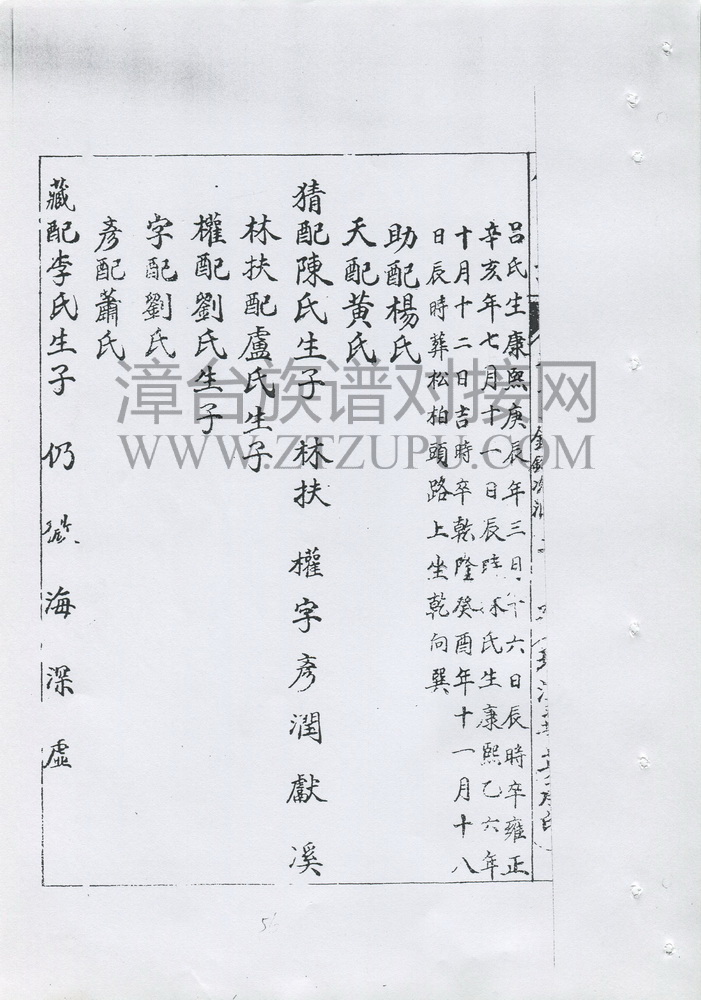 呂氏生康熙庚辰年三月 六日辰時卒雍正
辛亥年七月十一日辰時 氏生康熙乙六年
十月十二日吉時卒乾隆癸酉年十一月十八
日辰時葬松柏頭路上坐乾向巽
助配楊氏
天配黄氏
猜配陳氏生子 林扶 權 字 彥 潤 獻 溪
林扶配盧氏生子
權配劉氏生子
字配劉氏
彥配蕭氏
藏配李氏生子 仍 海 深 虛
漳台族谱对接网
WWW.ZTZUPU.COM